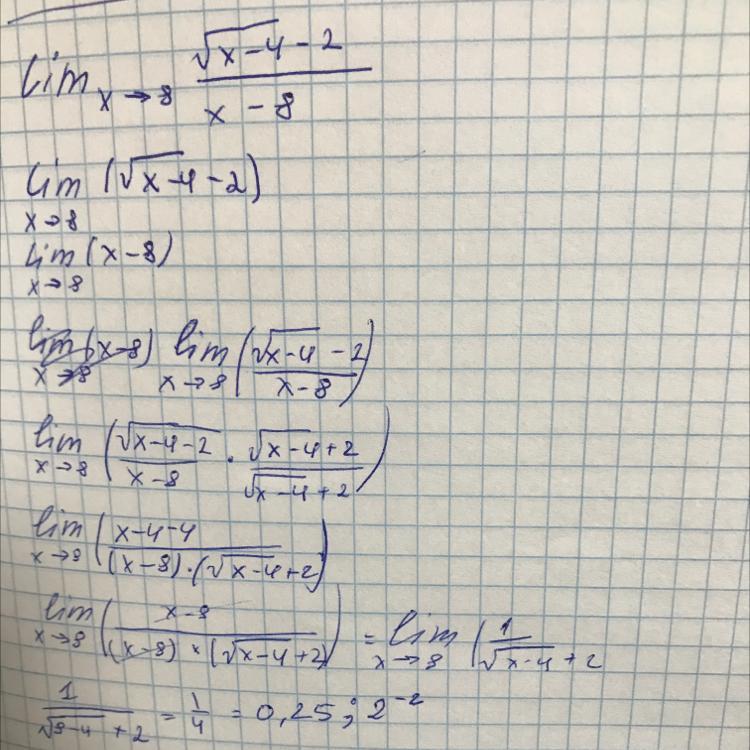 lim x→8 (√(x-4) - 2)/(x - 8)
lim x→8 (√(x-4) - 2)
lim x→8 (x-8)
lim x→8 (x-8) lim x→8 ((√(x-4) - 2)/(x-8))
lim x→8 (√(x-4-2)/(x-8) · (√(x-4) + 2)/(√(x-4) + 2))
lim x→8 ((x-4-4)/((x-8)·(√(x-4) + 2)))
lim x→8 ((x-8)/((x-8) × (√(x-4) + 2))) = lim x→8 (1/(√(x-4) + 2)
1/(√(8-4) + 2) = 1/4 = 0,25; 2⁻²